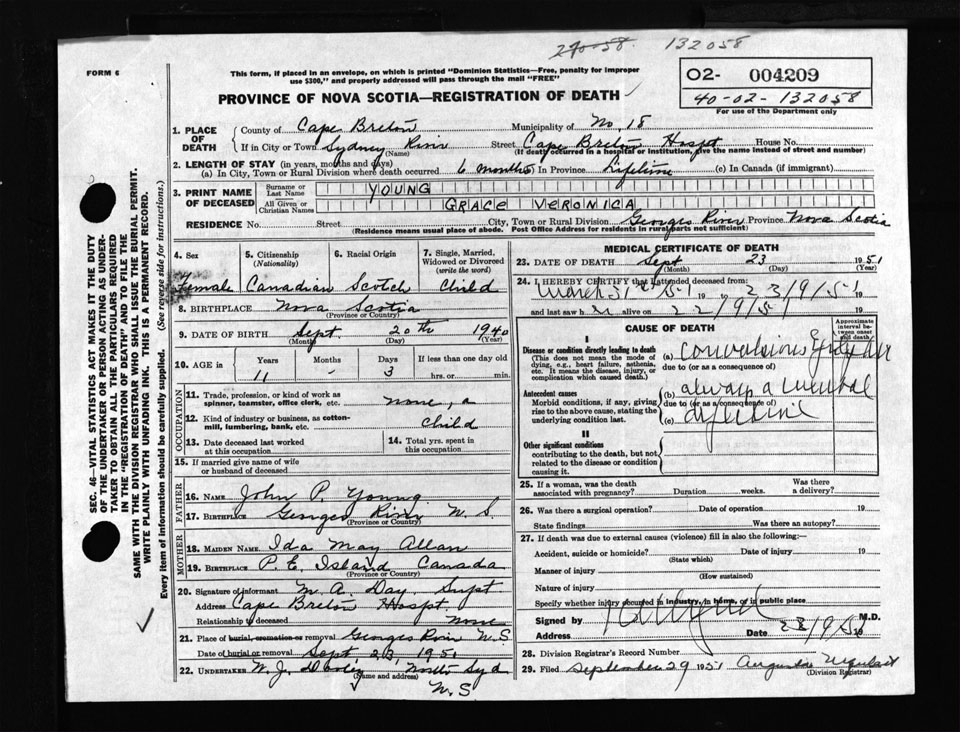 270-58. 132058
FORM 6
This form, if placed in an envelope, on which is printed "Dominion Statistics—Free, penalty for improper
use $300," and properly addressed will pass through the mail "FREE"
O2- 004209
40-02-132058
For use of the Department only
PROVINCE OF NOVA SCOTIA—REGISTRATION OF DEATH
SEC. 46—VITAL STATISTICS ACT MAKES IT THE DUTY
OF THE UNDERTAKER OR PERSON ACTING AS UNDER-
TAKER TO OBTAIN ALL THE PARTICULARS REQUIRED
IN THE "REGISTRATION OF DEATH" AND TO FILE THE
SAME WITH THE DIVISION REGISTRAR WHO SHALL ISSUE THE BURIAL PERMIT.
WRITE PLAINLY WITH UNFADING INK. THIS IS A PERMANENT RECORD.
Every item of information should be carefully supplied. (See reverse side for instructions.)
1. PLACE OF DEATH County of Cape Breton Municipality of No. 18
If in City or Town Sydney River Street Cape Breton Hospt House No.
(Name) (If death occurred in a hospital or institution, give the name instead of street and number)
2. LENGTH OF STAY (in years, months and days)
(a) In City, Town or Rural Division where death occurred 6 months (b) In Province Lifetime (c) In Canada (if immigrant)
3. PRINT NAME OF DECEASED Surname or Last Name YOUNG
All Given or Christian Names GRACE VERONICA
RESIDENCE No. Street City, Town or Rural Division Georges River Province Nova Scotia
(Residence means usual place of abode. Post Office Address for residents in rural parts not sufficient)
4. Sex 5. Citizenship (Nationality) 6. Racial Origin 7. Single, Married, Widowed or Divorced (write the word)
Female Canadian Scotch Child
8. BIRTHPLACE Nova Scotia
(Province or Country)
9. DATE OF BIRTH Sept. 20th 1940
(Month) (Day) (Year)
10. AGE in Years Months Days If less than one day old
11 - 3 hrs. or min.
OCCUPATION
11. Trade, profession, or kind of work as
spinner, teamster, office clerk, etc. none, a
12. Kind of industry or business, as cotton-
mill, lumbering, bank, etc. Child
13. Date deceased last worked at this occupation 14. Total yrs. spent in this occupation
15. If married give name of wife
or husband of deceased
FATHER
16. NAME John P. Young
17. BIRTHPLACE Georges River N.S.
(Province or Country)
MOTHER
18. MAIDEN NAME Ida May Allan
19. BIRTHPLACE P.E. Island Canada
(Province or Country)
20. Signature of informant M. A. Day. Supt
Address Cape Breton Hospt.
Relationship to deceased None
21. Place of burial, cremation or removal Georges River N.S.
Date of burial or removal Sept 23, 1951
22. UNDERTAKER W. J. North Syd
(Name and address)
N.S
MEDICAL CERTIFICATE OF DEATH
23. DATE OF DEATH Sept 23 1951
(Month) (Day) (Year)
24. I HEREBY CERTIFY that I attended deceased from:
March 51 19 to 23/9/51 19
and last saw h alive on 22/9/51 19
CAUSE OF DEATH
Approximate interval between onset and death
I
Disease or condition directly leading to death
(This does not mean the mode of dying, e.g., heart failure, asthenia, etc. It means the disease, injury, or complication which caused death.)
(a) convulsions
due to (or as a consequence of)
Antecedent causes
Morbid conditions, if any, giving rise to the above cause, stating the underlying condition last.
(b) always a mental
due to (or as a consequence of)
(c) defective
II
Other significant conditions
contributing to the death, but not related to the disease or condition causing it.
25. If a woman, was the death associated with pregnancy? Duration weeks. Was there a delivery?
26. Was there a surgical operation? Date of operation 19
State findings Was there an autopsy?
27. If death was due to external causes (violence) fill in also the following:—
Accident, suicide or homicide? Date of injury 19
(State which)
Manner of injury
(How sustained)
Nature of injury
Specify whether injury occurred in industry, in home, or in public place
Signed by M.D.
Address Date 23/9/51 19
28. Division Registrar's Record Number
29. Filed September 29 1951
(Division Registrar)